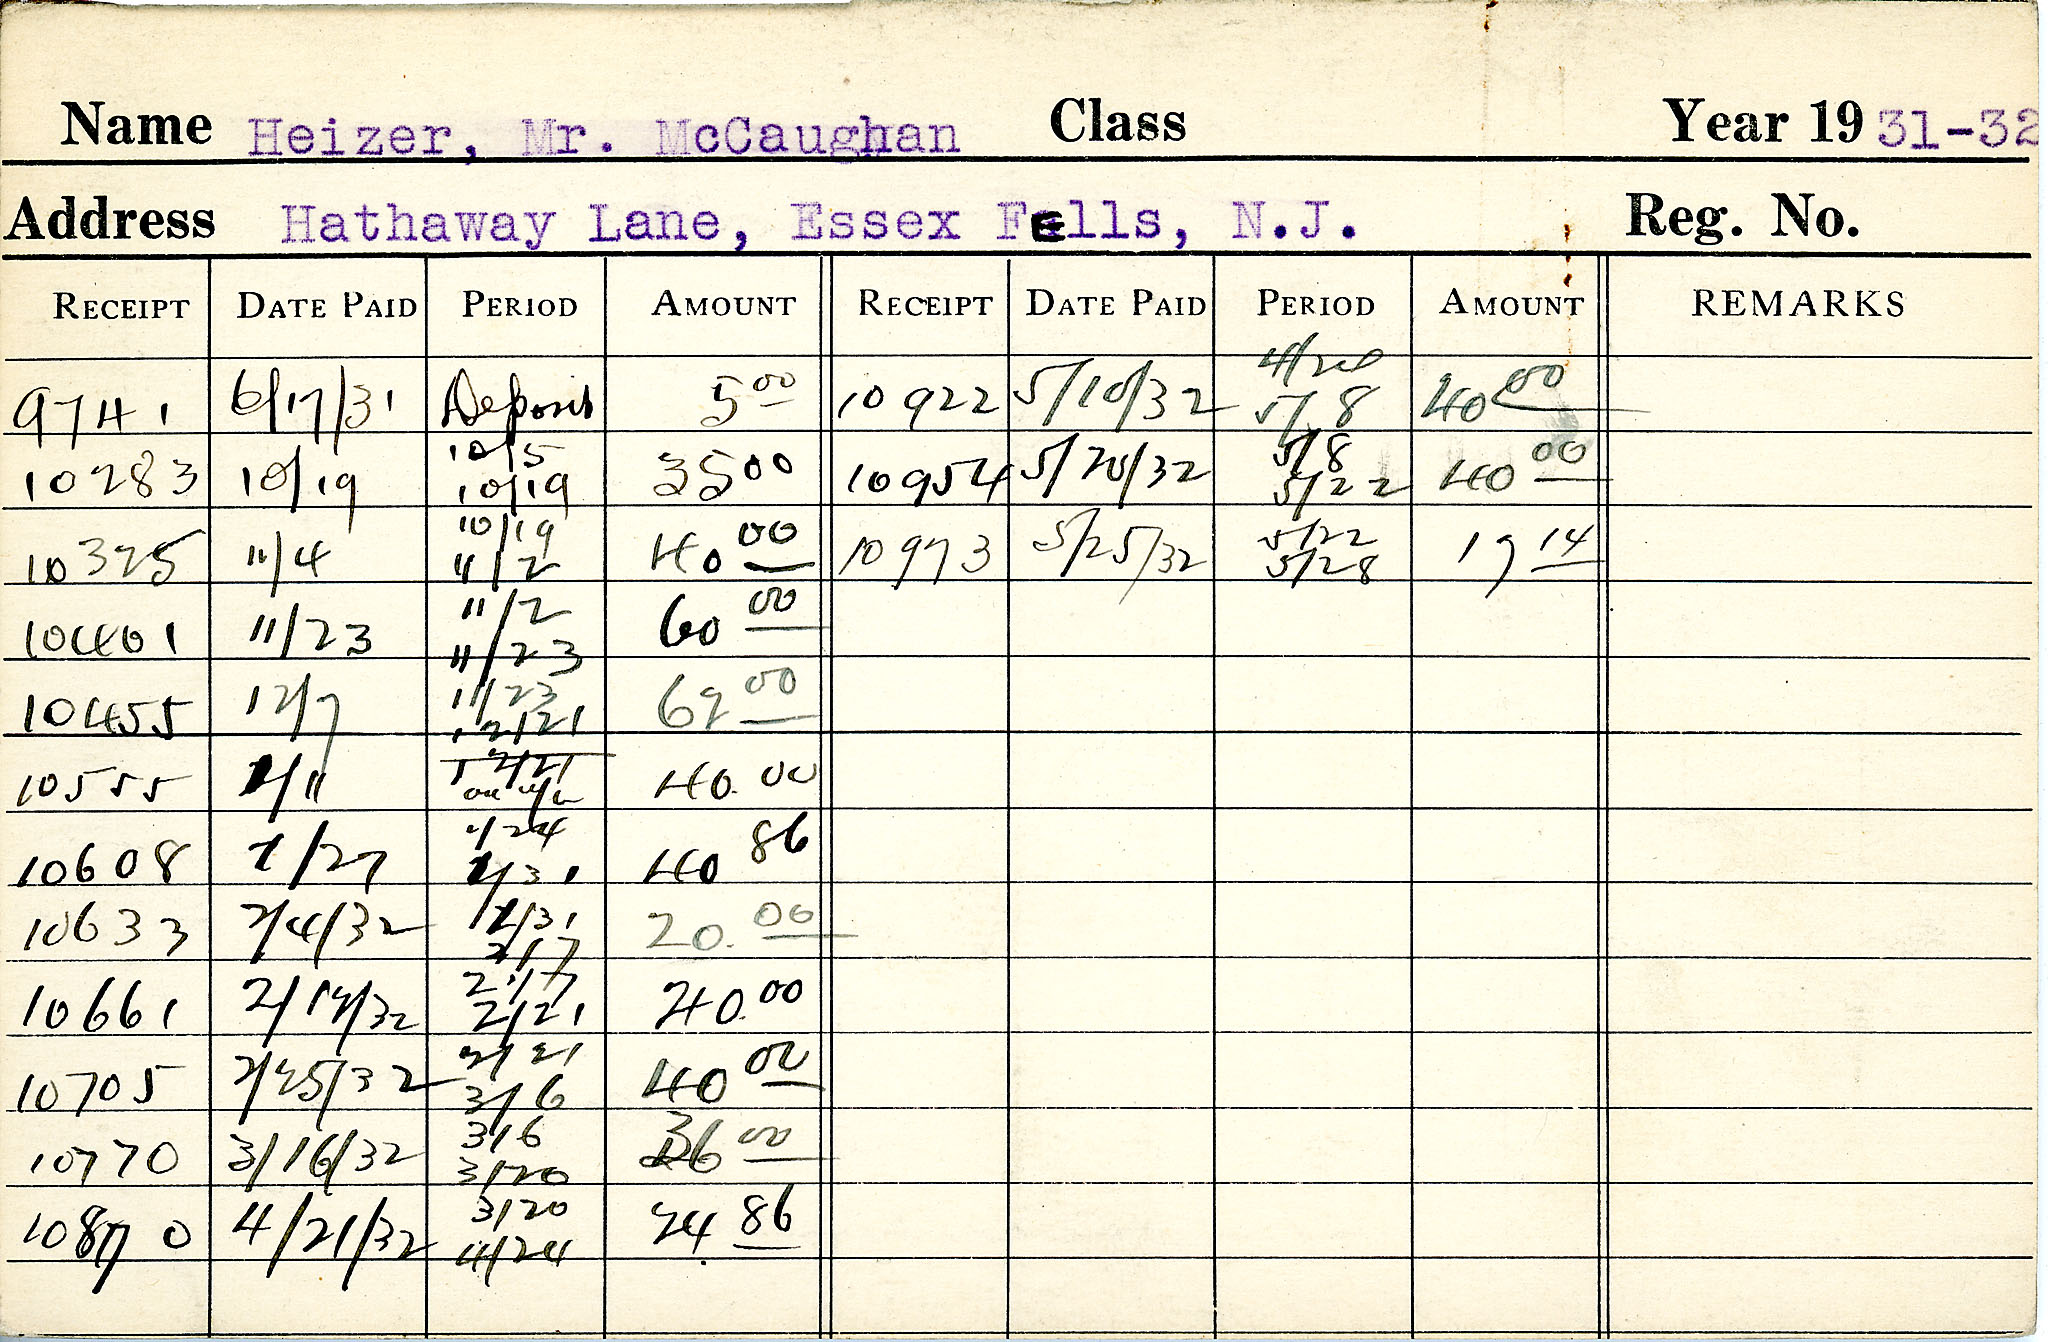 Name Heizer, Mr. McCaughan Class Year 19 31-32
Address Hathaway Lane, Essex FElls, N.J. Reg. No.
RECEIPT DATE PAID PERIOD AMOUNT RECEIPT DATE PAID PERIOD AMOUNT REMARKS
4/24
9741 6/17/31 Deposit 5 00 10922 5/10/32 5/8 40 00
10/5 5/8
10283 10/19 10/19 35 00 10954 5/20/32 5/22 40 00
10/19 5/22
10325 11/4 11/2 40 00 10973 5/25/32 5/28 17 14
11/2
10401 11/23 11/23 60 00
11/23
10455 12/7 12/21 62 00
12/21
10555 1/11 40.00
1/24
10608 1/27 1/31 40 86
1/31
10633 2/4/32 2/7 20.00
2/7
10661 2/21 40.00
2/21
10705 2/25/32 3/6 40 00
3/6
10770 3/16/32 3/20 36 00
3/20
10870 4/21/32 4/24 24 86